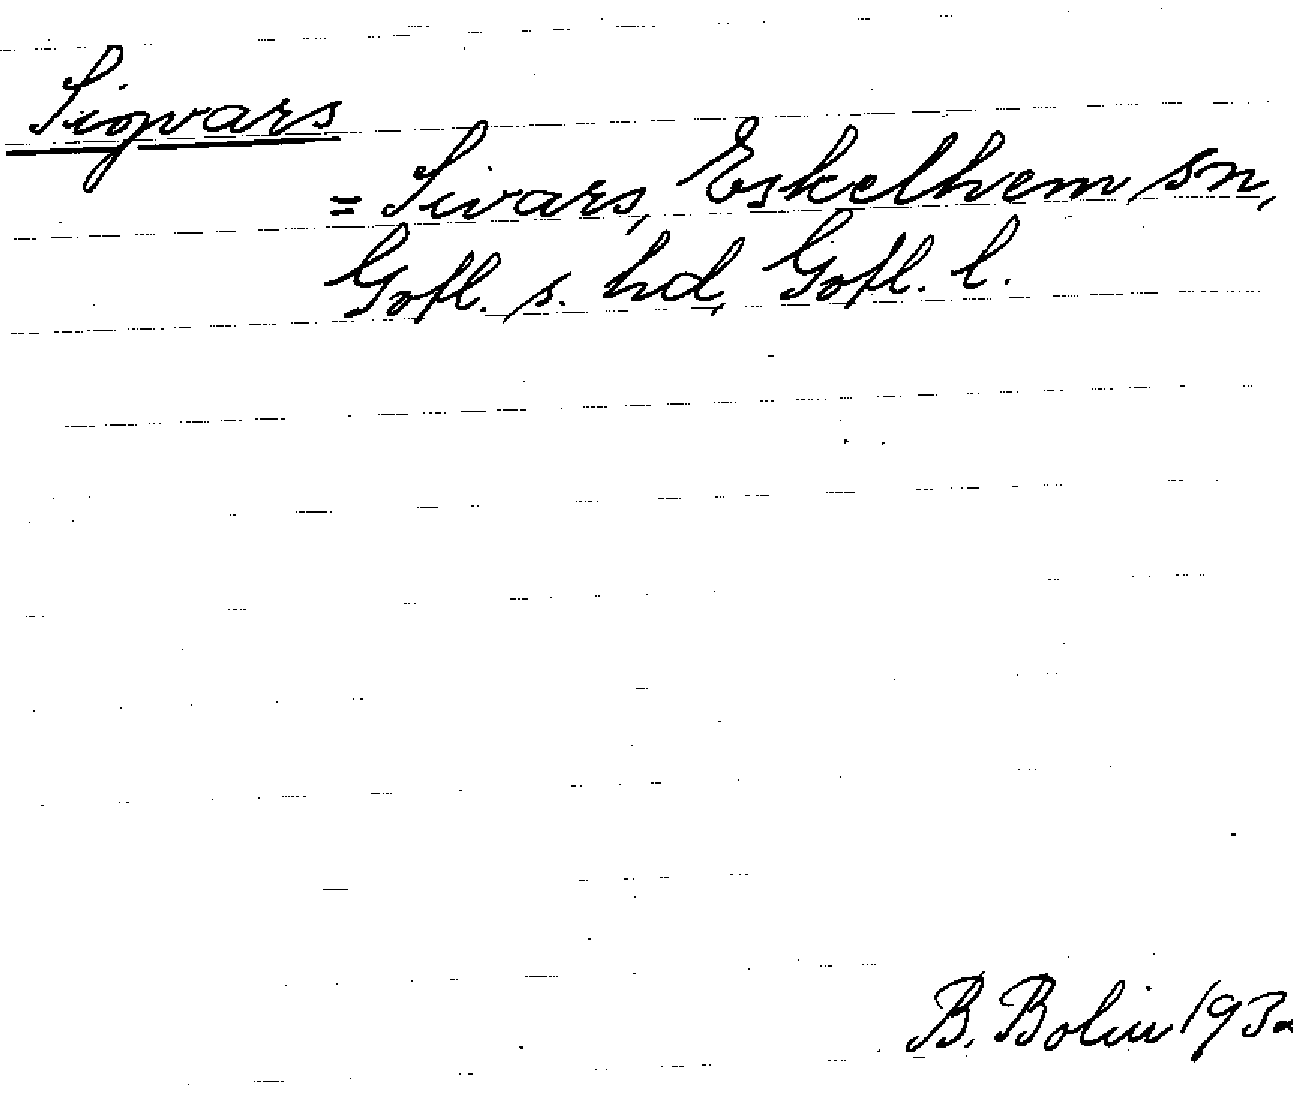 Sigvars
= Sivars, Eskelhem sn,
Gotl. s. hd, Gotl. l.
B. Bolin